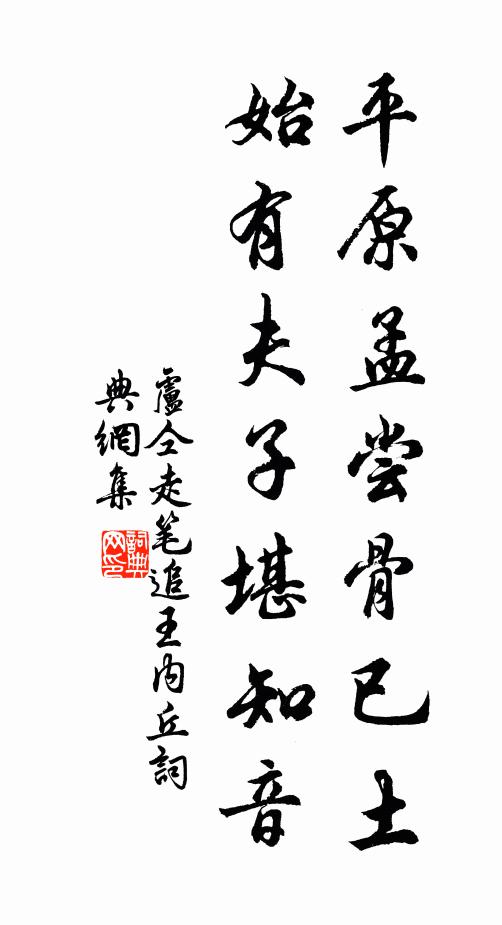 平原孟尝骨已土
始有夫子堪知音
盧仝走笔追王内丘詞
典網集
詞典
网印